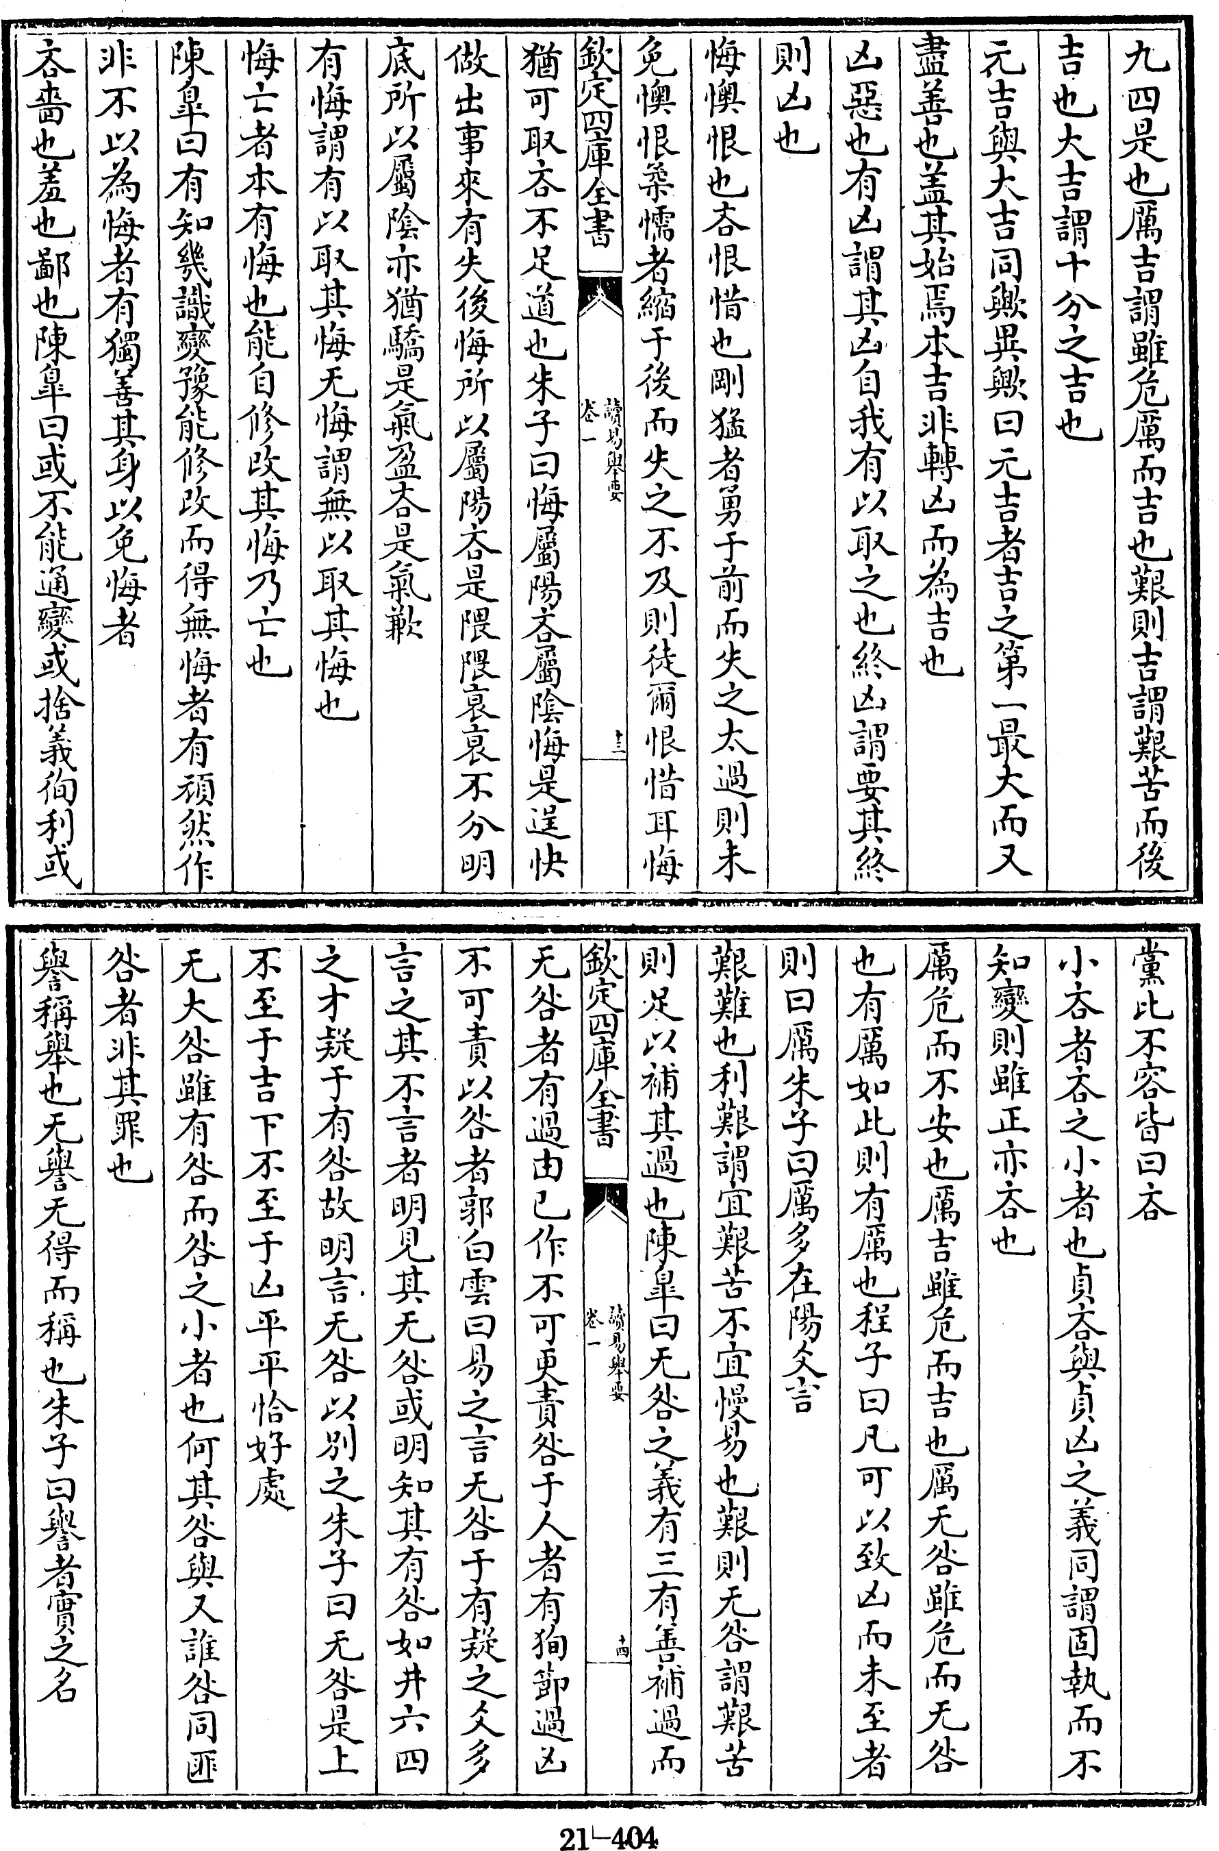 九四是也厲吉謂雖危厲而吉也艱則吉謂艱苦而後
吉也大吉謂十分之吉也
元吉與大吉同歟異歟曰元吉者吉之第一最大而又
盡善也蓋其始焉本吉非轉凶而為吉也
凶惡也有凶謂其凶自我有以取之也終凶謂要其終
則凶也
悔懊恨也吝恨惜也剛猛者勇于前而失之太過則未
免懊恨柔懦者縮于後而失之不及則徒爾恨惜耳悔
欽定四庫全書
讀易舉要
卷一
十三
猶可取吝不足道也朱子曰悔屬陽吝屬陰悔是逞快
做出事來有失後悔所以屬陽吝是隈隈裒裒不分明
底所以屬陰亦猶驕是氣盈吝是氣歉
有悔謂有以取其悔无悔謂無以取其悔也
悔亡者本有悔也能自修改其悔乃亡也
陳臯曰有知幾識變豫能修改而得無悔者有頑然作
非不以為悔者有獨善其身以免悔者
吝嗇也羞也鄙也陳臯曰或不能通變或捨義徇利或
黨比不容皆曰吝
小吝者吝之小者也貞吝與貞凶之義同謂固執而不
知變則雖正亦吝也
厲危而不安也厲吉雖危而吉也厲无咎雖危而无咎
也有厲如此則有厲也程子曰凡可以致凶而未至者
則曰厲朱子曰厲多在陽爻言
艱難也利艱謂宜艱苦不宜慢易也艱則无咎謂艱苦
則足以補其過也陳臯曰无咎之義有三有善補過而
欽定四庫全書
讀易舉要
卷一
十四
无咎者有過由已作不可更責咎于人者有狥節過凶
不可責以咎者郭白雲曰易之言无咎于有疑之爻多
言之其不言者明見其无咎或明知其有咎如井六四
之才疑于有咎故明言无咎以別之朱子曰无咎是上
不至于吉下不至于凶平平恰好處
无大咎雖有咎而咎之小者也何其咎與又誰咎同匪
咎者非其罪也
譽稱舉也无譽无得而稱也朱子曰譽者實之名
21-404